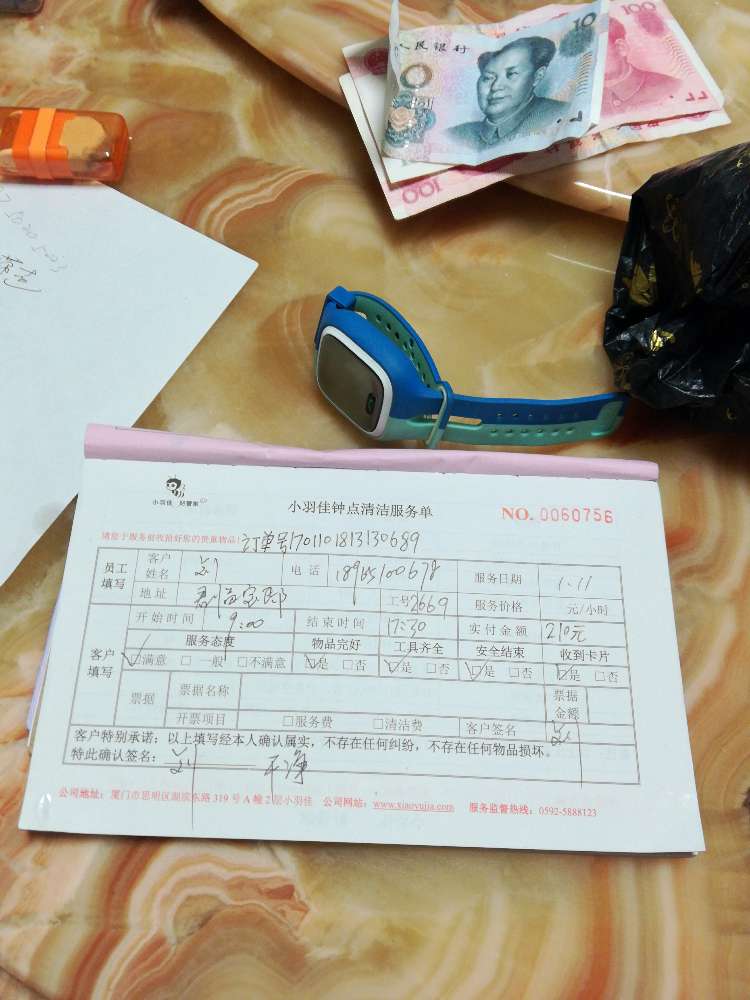 人民银行
10
100
100
小羽佳 好管家
小羽佳钟点清洁服务单
NO. 0060756
请您于服务前收拾好您的贵重物品!
订单号170110181313 0689
员工填写
客户姓名
电话 18965100678
服务日期 1.11
地址
工号 2669
服务价格 元/小时
开始时间 9:00
结束时间 17:30
实付金额 210元
客户填写
服务态度
物品完好
工具齐全
安全结束
收到卡片
☑满意 □一般 □不满意
☑是 □否
☑是 □否
☑是 □否
☑是 □否
票据
票据名称
票据金额
开票项目
□服务费 □清洁费
客户签名
客户特别承诺:以上填写经本人确认属实,不存在任何纠纷,不存在任何物品损坏。
特此确认签名: 干净
公司地址:厦门市思明区湖滨东路319号A幢2层小羽佳 公司网站:www.xiaoyujia.com 服务监督热线:0592-5888123